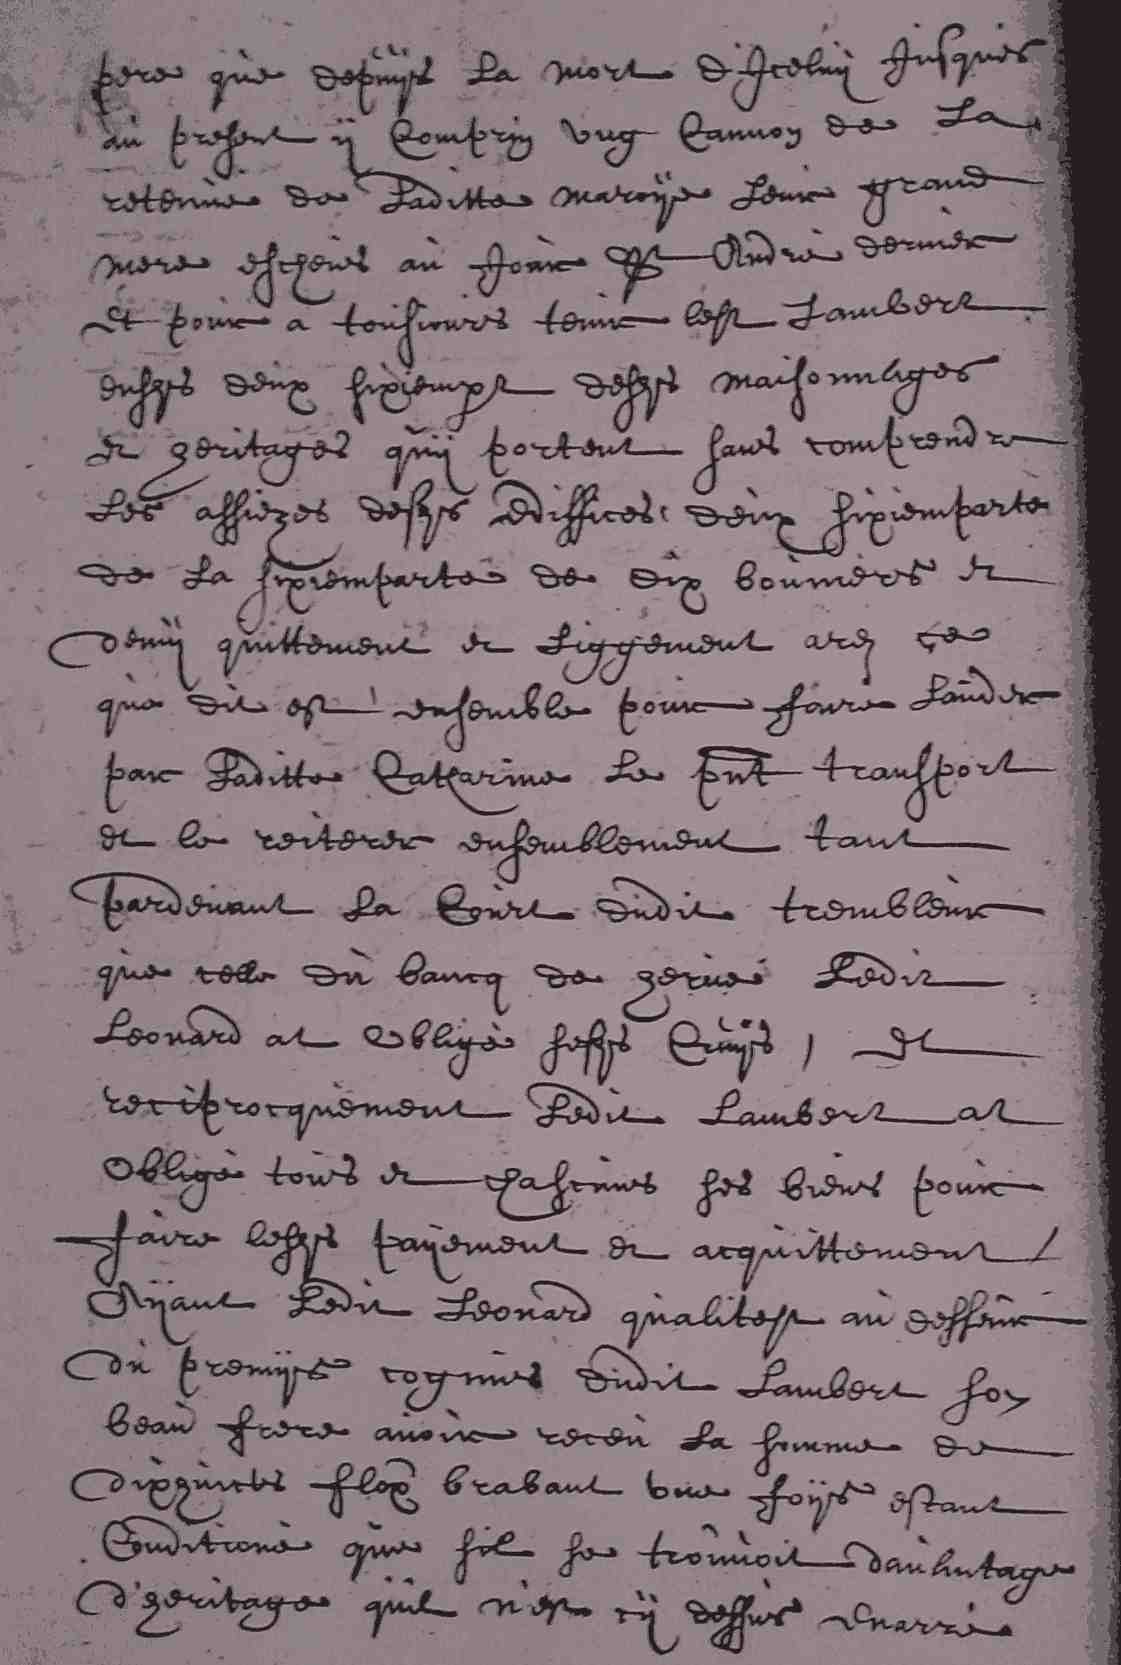 pere que depuijs La mort d'Iceluij Jusques
au present ij Comprin ung Cannon de La
retenue de Laditte maroije Leur grand
mere escheus au Jour St Andre dernier
Et pour a tousiours tenir lest Lambert
ensijs deux sixiempt desijs maisonnages
et heritages quij portent sans comprendre
Les assiezes desijs Ediffices, deux sixiemparte
de La sixiemparte de dix bouniers et
demij quittement et Liggement ard ce
que dit est ensemble pour faire Lauder
par Laditte Catharine Le pnt transport
et le reiterer ensemblement tant
pardevant La Court dudit trembleur
que celle du bancq de herve Ledit
Leonard at Obligé sesijs Cruijs, Et
reciprocquement Ledit Lambert at
Obligé tous et chascuns ses biens pour
faire lesijs paijement et acquittement /
Aijant Ledit Leonard qualitest au desseur
du premijs cognus dudit Lambert son
beau frere avoir receu La somme de
dixhuictes flox brabant une foijs estant
Conditioné que sil se trouvoit dauantage
d'heritage quil n'est cij dessus Enarré